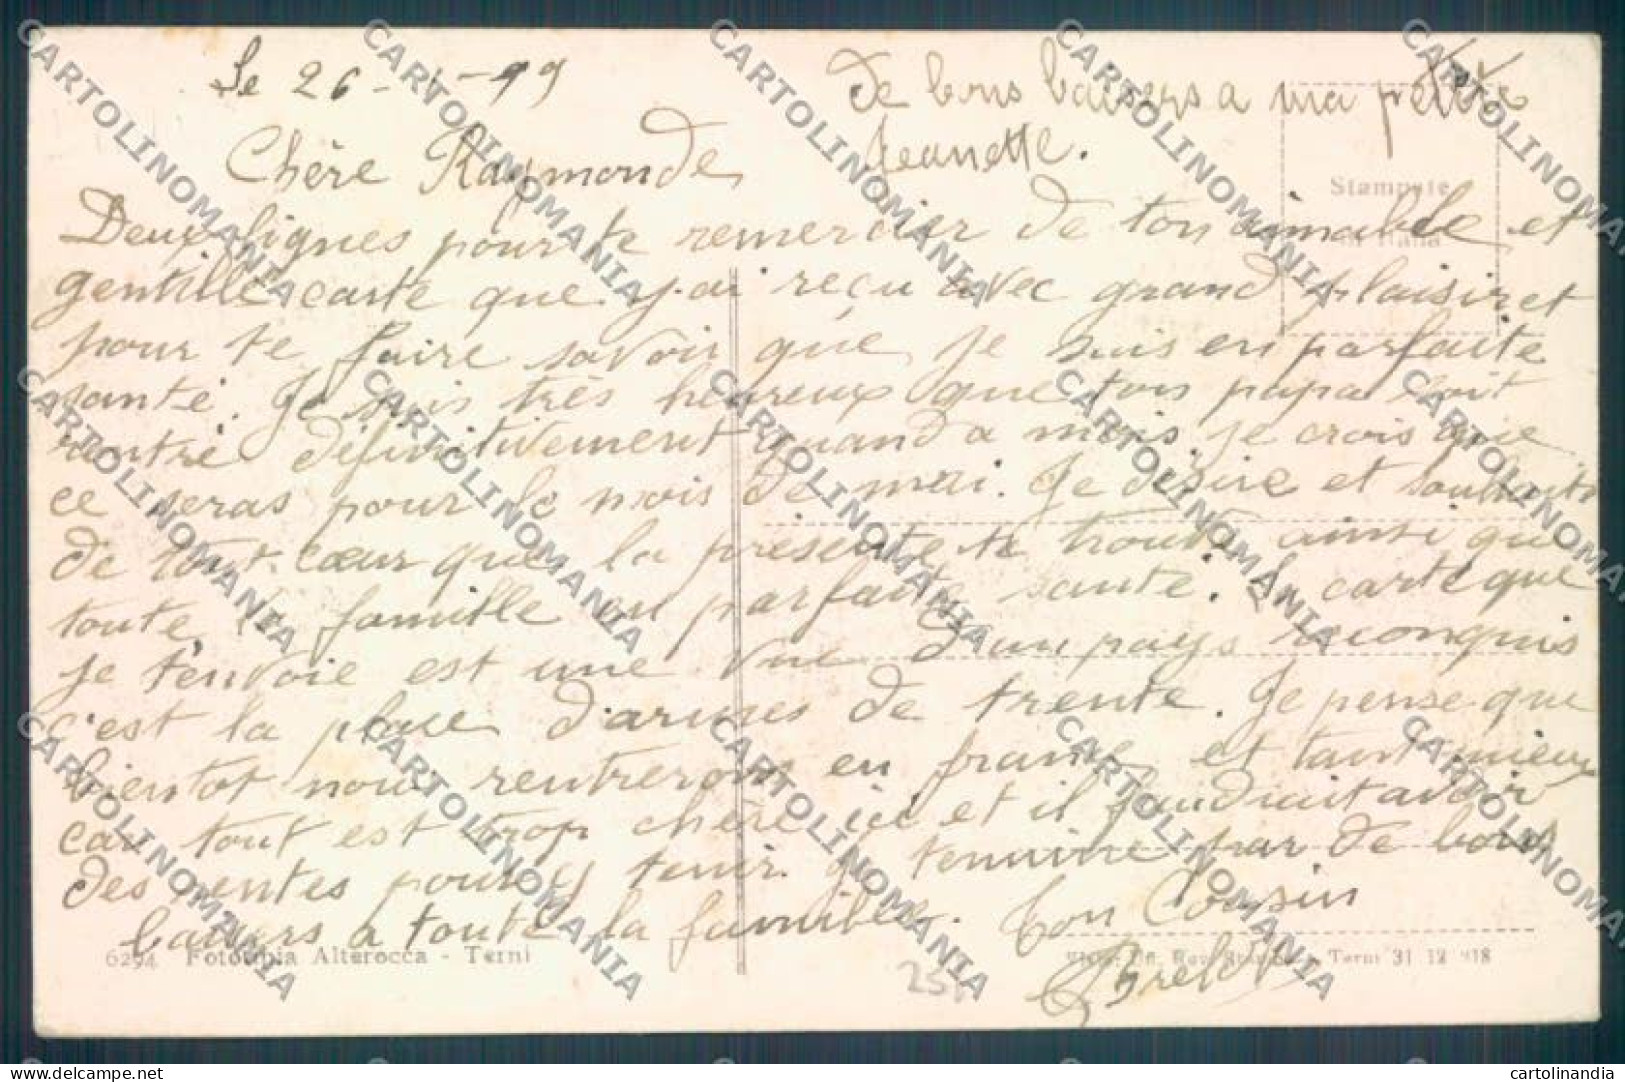 Le 26 - 1 - 99
De bons baisers a ma petite
Jeanette.
Chère Raymonde,
Deux lignes pour te remercier de ton aimable et
gentille carte que j'ai reçu avec grand plaisir et
pour te faire savoir que je suis en parfaite
santé. Je suis très heureux que ton papa soit
rentré définitivement quand a mois je crois que
ce seras pour le mois de mai. Je désire et souhaite
de tout cœur que la présente te trouve ainsi que
toute la famille en parfaite santé. La carte que
je t'envoie est une vue d'un pays reconquis
c'est la place d'armes de trente. Je pense que
bientot nous rentrerons en france et tant mieux
car tout est trop chère ici et il faudrait avoir
des rentes pour y tenir. Je termine par de bons
baisers a toute la famille. Ton Cousin
Stampate
in Italia
6294 Fototipia Alterocca - Terni
Terni 31 12 918
25
CARTOLINOMANIA
cartolinandia